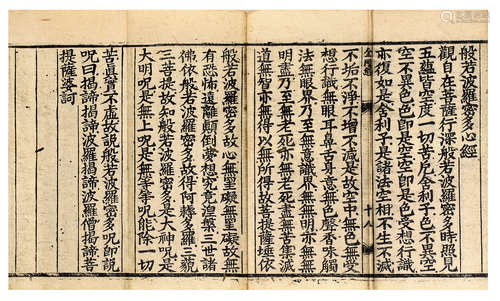 般若波羅密多心經
觀自在菩薩行深般若波羅密多時照見
五蘊皆空度一切苦厄舍利子色不異空
空不異色色即是空空即是色受想行識
亦復如是舍利子是諸法空相不生不滅
十八
不垢不淨不增不減是故空中無色無受
想行識無眼耳鼻舌身意無色聲香味觸
法無眼界乃至無意識界無無明亦無無
明盡乃至無老死亦無老死盡無苦集滅
道無智亦無得以無所得故菩提薩埵依
般若波羅密多故心無罣礙無罣礙故無
有恐怖遠離顛倒夢想究竟湼槃三世諸
佛依般若波羅密多故得阿耨多羅三藐
三菩提故知般若波羅密多是大神咒是
大明咒是無上咒是無等等咒能除一切
苦真實不虛故說般若波羅密多咒即說
咒曰揭諦揭諦波羅揭諦波羅僧揭諦菩
提薩婆訶